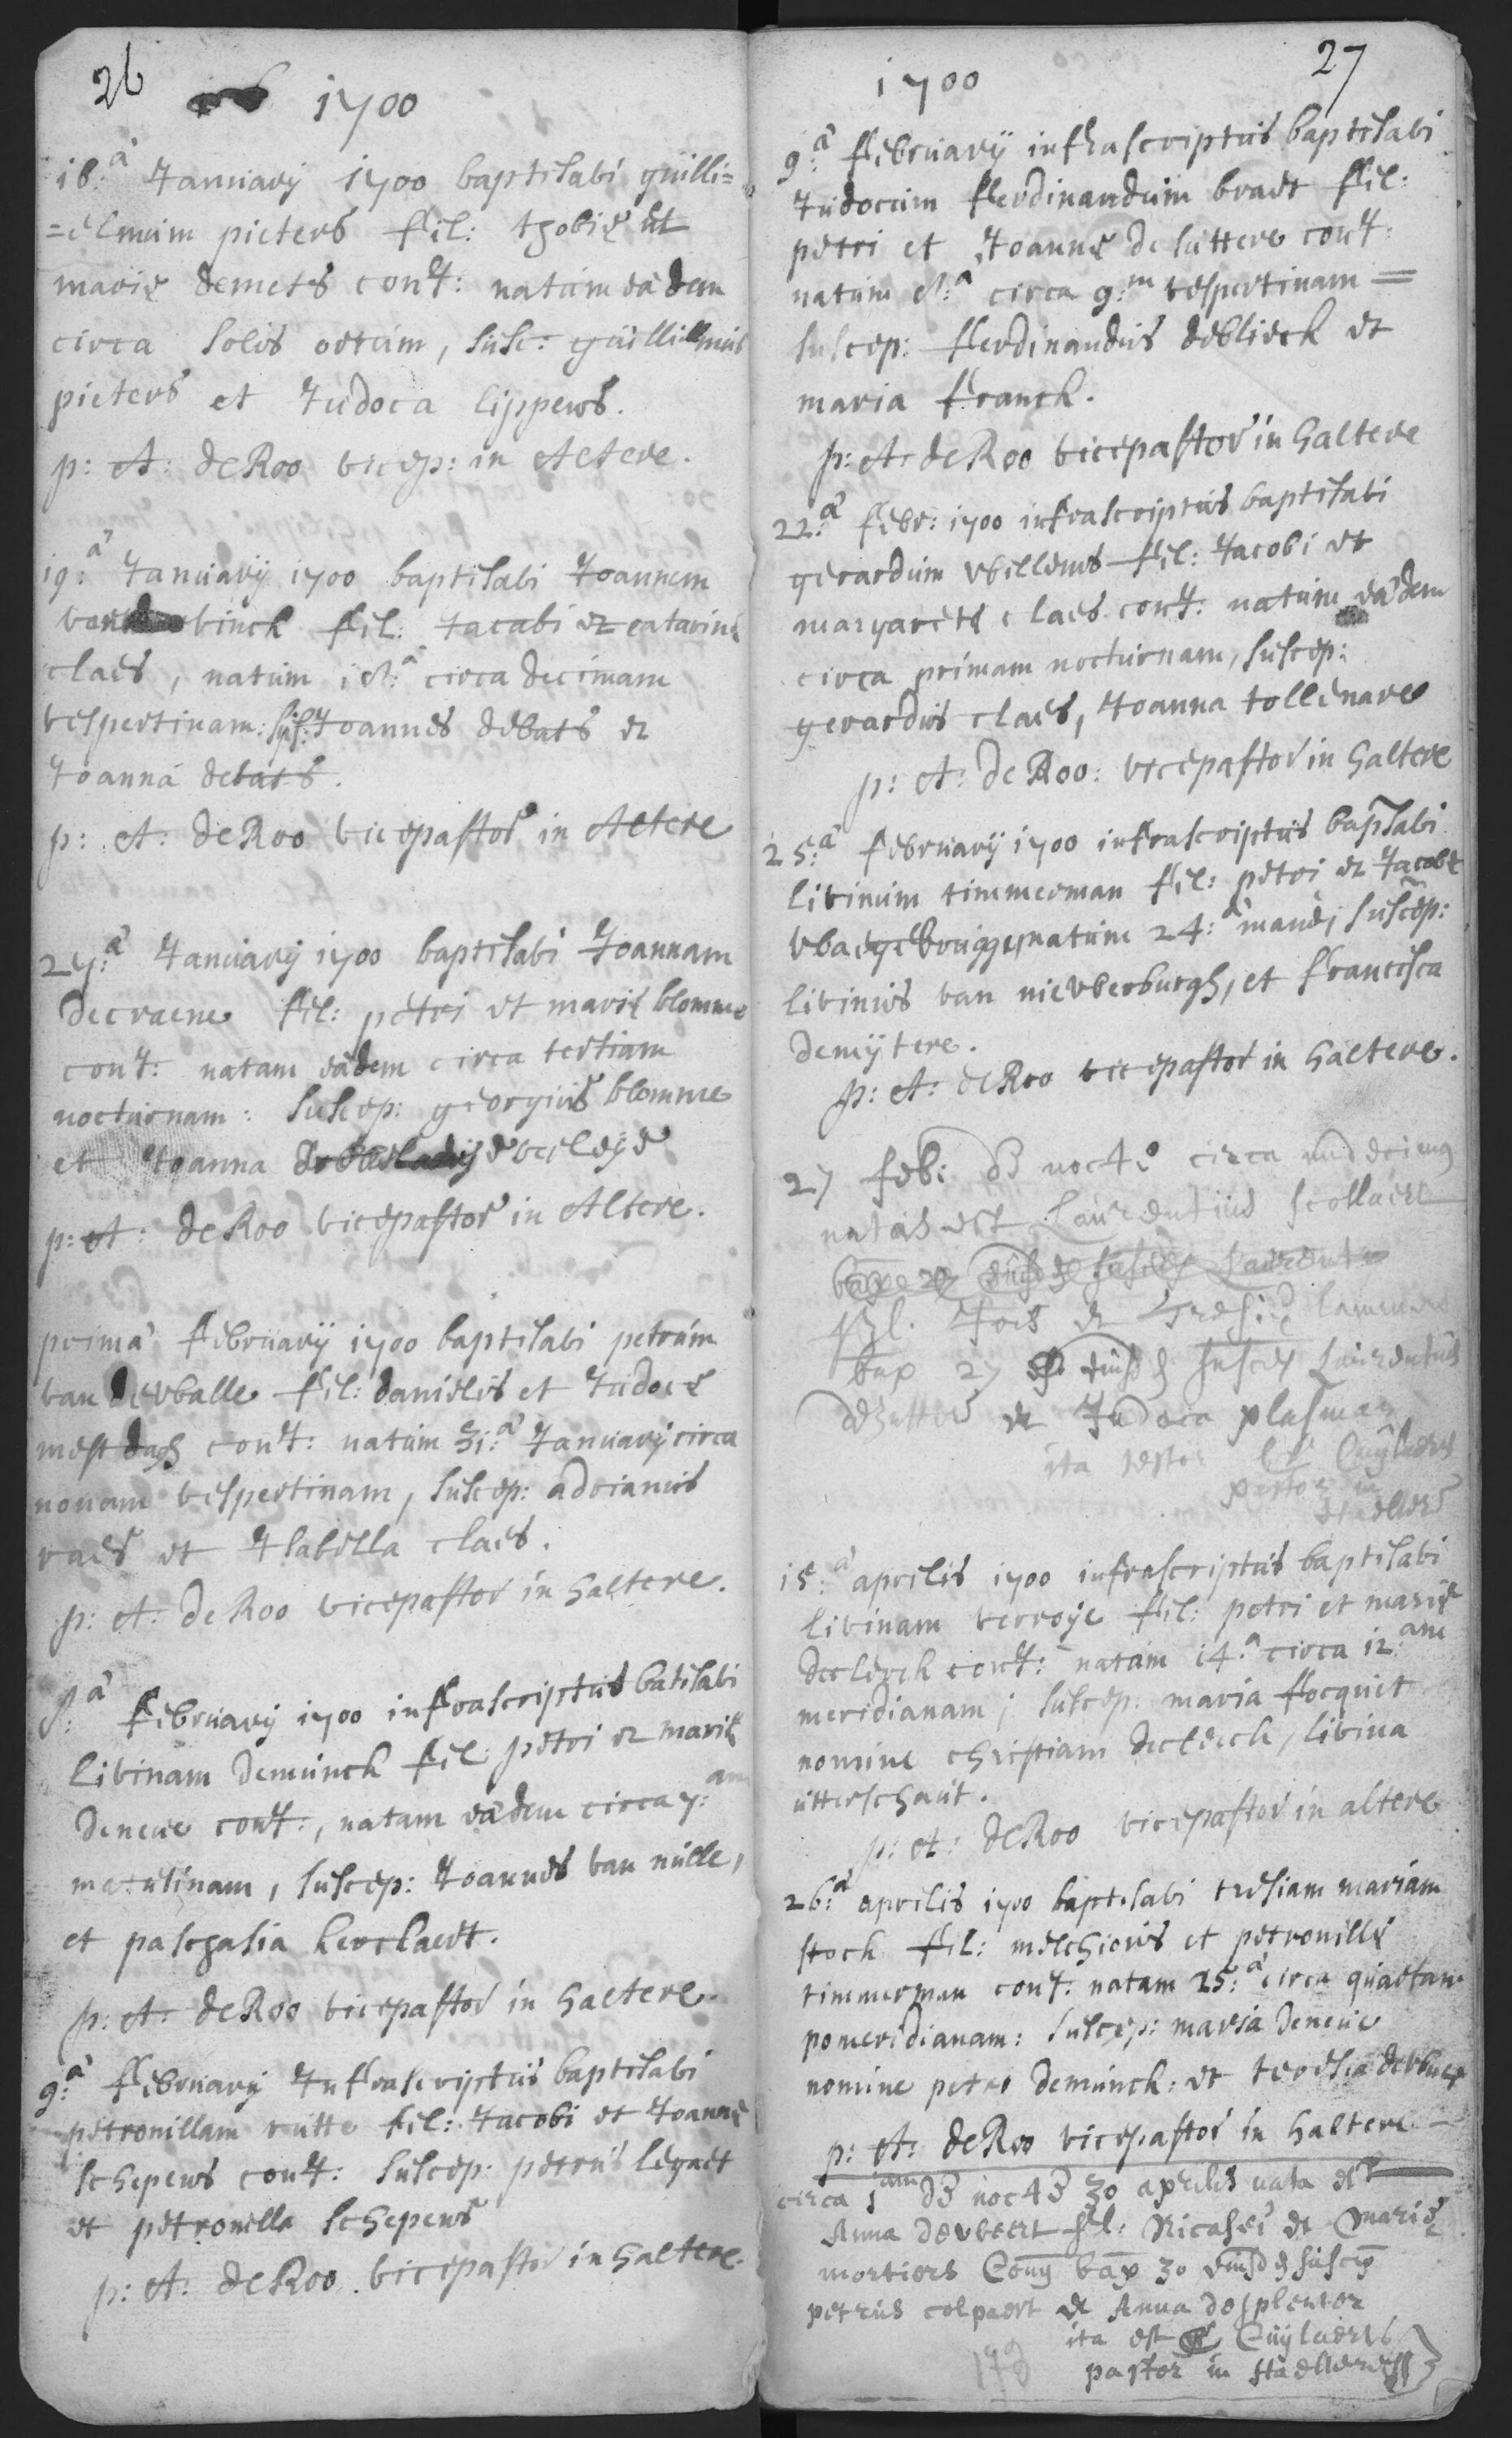 26
1700
18:a January 1700 baptisavi guilli=
=elmum pieters fil: thobiæ et
mariæ demets conj: natum eadem
circa solis ortum, susc: guillielmus
pieters et Judoca lippens.
p: A: deRoo vicep: in Aeltere.
19:a January 1700 baptisavi Joannem
vinck fil: Jacobi et catarinæ
claes, natum 18:a circa decimam
vespertinam: sus: Joannes debats et
Joanna debats.
p: A: deRoo vicepastor in Aeltere
27:a January 1700 baptisavi Joannam
decraene fil: petri et mariæ blomme
conj: natam eadem circa tertiam
nocturnam: suscep: georgius blomme
et Joanna
p: A: deRoo vicepastor in Altere.
prima February 1700 baptisavi petrum
van dewalle fil: danielis et Judocæ
mestdagh conj: natum 31:a January circa
nonam vespertinam, suscep: adrianus
raes et Isabella claes.
p: A: deRoo vicepastor in haltere.
8:a February 1700 infrascriptus batisavi
livinam demunck fil petri et mariæ
deneve conj:, natam eadem circa 7:am
matutinam, suscep: Joannes van nulle,
et paschasia kerckaert.
p: A: deRoo vicepastor in haltere.
9:a February Infrascriptus baptisavi
petronillam rutte fil: Jacobi et Joannæ
schepens conj: suscep: petrus legaet
et petronilla schepens
p: A: deRoo vicepastor in haltere.
27
1700
9:a February infrascriptus baptisavi
Judocum ferdinandum braet fil:
petri et Joannæ de suttere conj:
natum 8:a circa 9:m vespertinam =
suscep: ferdinandus deblieck et
maria franck.
p: A: deRoo vicepastor in haltere
22:a febr: 1700 infrascriptus baptisavi
gerardum willems fil: Jacobi et
margaretæ claes conj: natum eadem
circa primam nocturnam, suscep:
gerardus claes, Joanna tollenare
p: A: deRoo: vicepastor in haltere
25:a february 1700 infrascriptus bapt̃savi
livinum timmerman fil: petri et Jacobæ
wbaegebrugge, natum 24:a mane, suscep:
livinus van niewerburgh, et francisca
demytere.
p: A: deRoo vicepastor in haltere.
27 feb: de nocte circa undecimā
natus est Laurentius scollaert
fil. Jois et Tresiæ lammens
bap 27 eiusdē suscep Laurentius
desutter et Judoca plasman
ita testor Cuylaerts
pastor in
15:a aprilis 1700 infrascriptus baptisavi
livinam verroije fil: petri et mariæ
declerck conj: natam 14:a circa 12:am
meridianam, suscep: maria focquet
nomine christiani declerck, livina
utterschaut.
p: A: deRoo vicepastor in altere
26:a aprilis 1700 baptisavi tresiam mariam
stock fil: melchioris et petronillæ
timmerman conj: natam 25:a circa quartam
pomeridianam: suscep: maria deneve
nomine petro demunck: et teresia
p: A: deRoo vicepastor in haltere
circa 1am de nocte 30 aprilis nata est
Anna devbeert fil: Nicasei et Mariæ
mortiers Conj bap 30 eiusdē suscep
petrus colpaert et Anna desplenter
ita est Cuylaerts
pastor in
178